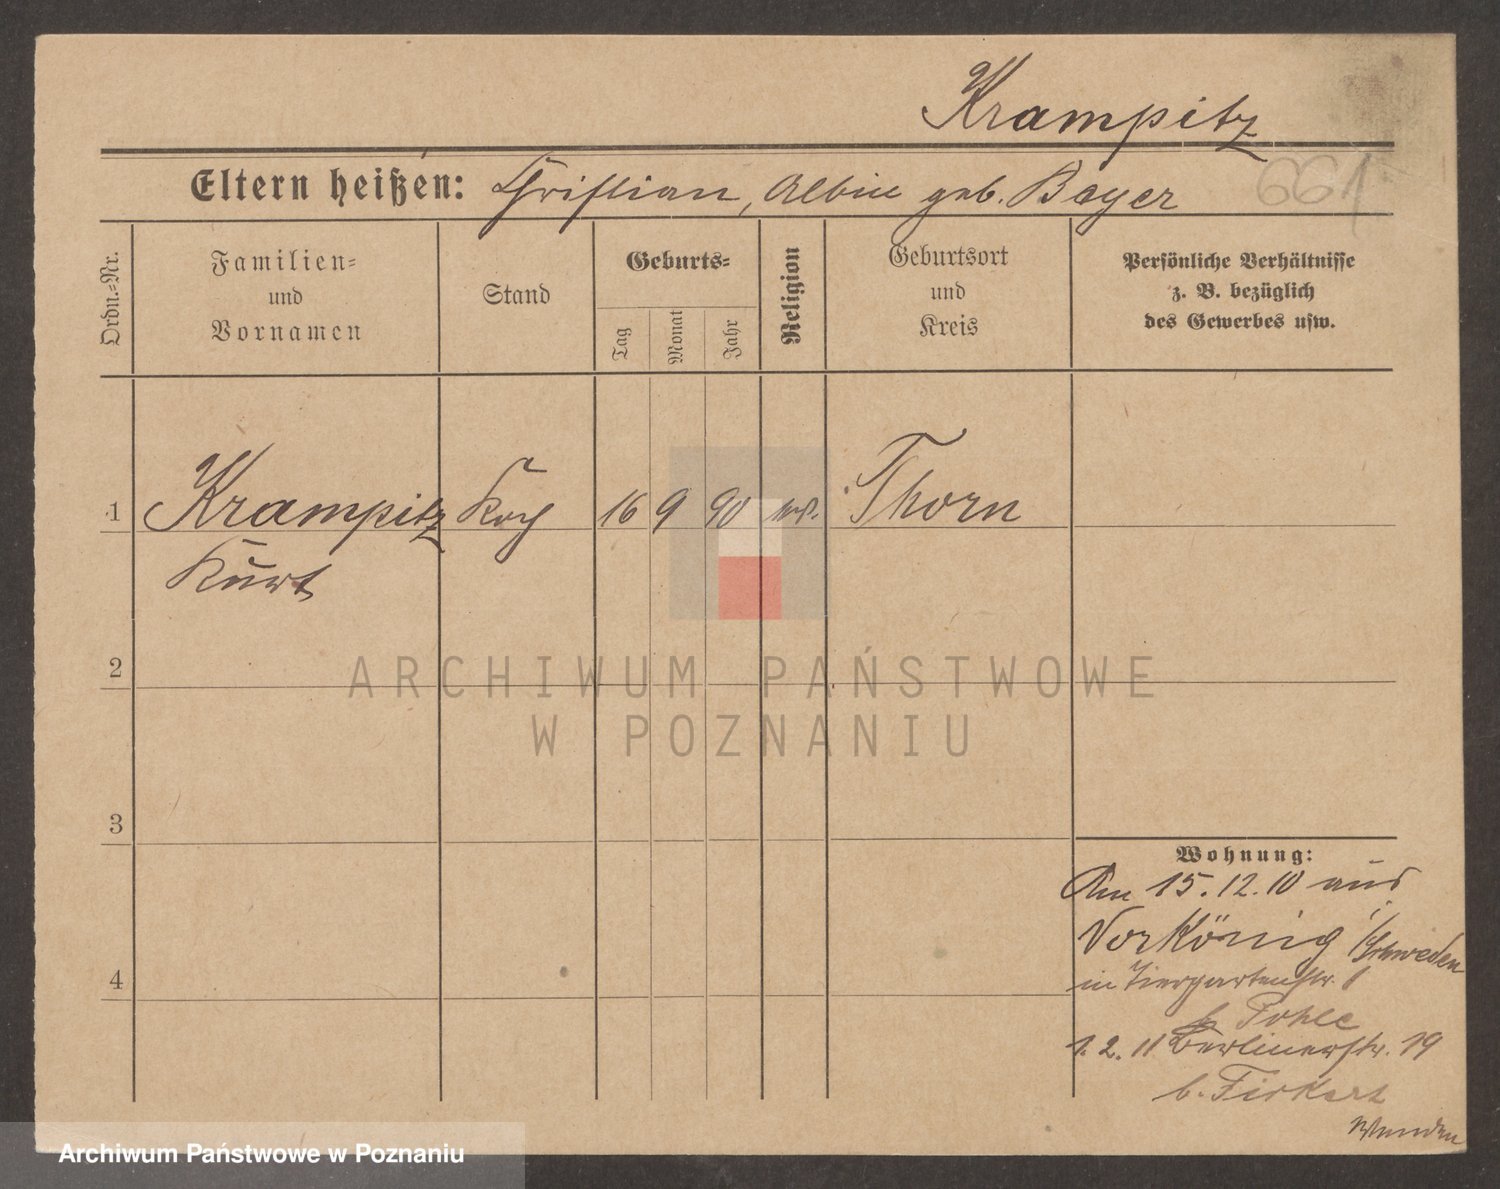 Krampitz
661
Eltern heißen: Christian, Albine geb. Beyer
Ordn.=Nr.
Familien=
und
Vornamen
Stand
Geburts=
Tag
Monat
Jahr
Religion
Geburtsort
und
Kreis
Persönliche Verhältnisse
z. B. bezüglich
des Gewerbes usw.
1 Krampitz Koch 16 9 90 ev. Thorn
Kurt
2
3
4
Wohnung:
Am 15.12.10 aus
i/Schweden
in Tiergartenstr. 1
b. Pohle
1.2.11 Berlinerstr. 19
b.
Wenden
ARCHIWUM PAŃSTWOWE
W POZNANIU
Archiwum Państwowe w Poznaniu